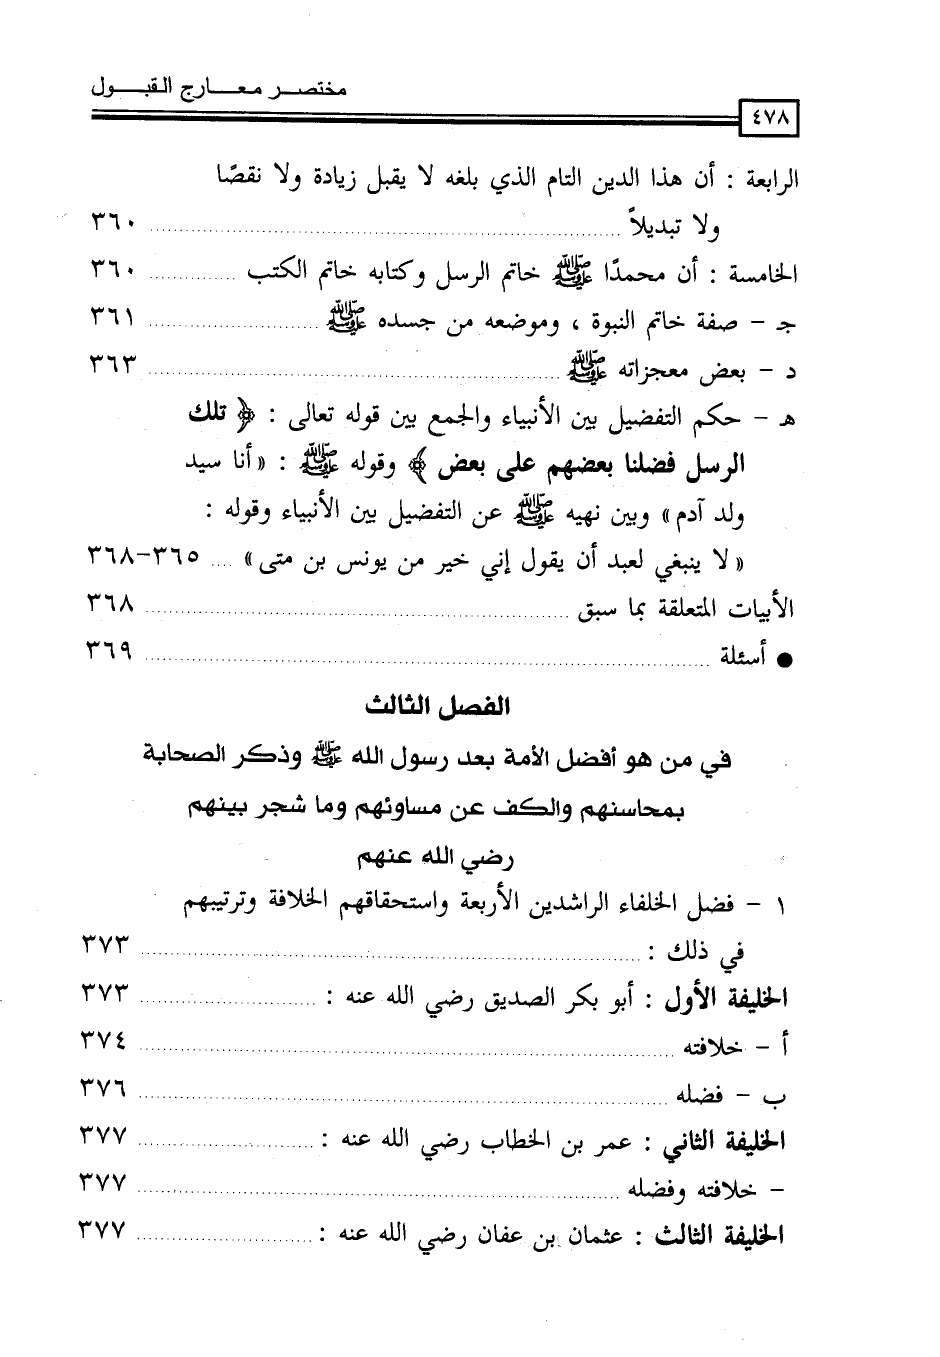 مختصر معارج القبول
٤٧٨
الرابعة : أن هذا الدين التام الذي بلغه لا يقبل زيادة ولا نقصًا
ولا تبديلاً ........ ٣٦٠
الخامسة : أن محمدًا ﷺ خاتم الرسل وكتابه خاتم الكتب ........ ٣٦٠
جـ - صفة خاتم النبوة ، وموضعه من جسده ﷺ ........ ٣٦١
د - بعض معجزاته ﷺ ........ ٣٦٣
هـ - حكم التفضيل بين الأنبياء والجمع بين قوله تعالى : ﴿ تلك
الرسل فضلنا بعضهم على بعض ﴾ وقوله ﷺ : «أنا سيد
ولد آدم» وبين نهيه ﷺ عن التفضيل بين الأنبياء وقوله :
«لا ينبغي لعبد أن يقول إني خير من يونس بن متى» .... ٣٦٥-٣٦٨
الأبيات المتعلقة بما سبق ........ ٣٦٨
● أسئلة ........ ٣٦٩
الفصل الثالث
في من هو أفضل الأمة بعد رسول الله ﷺ وذكر الصحابة
بمحاسنهم والكف عن مساوئهم وما شجر بينهم
رضي الله عنهم
١ - فضل الخلفاء الراشدين الأربعة واستحقاقهم الخلافة وترتيبهم
في ذلك : ........ ٣٧٣
الخليفة الأول : أبو بكر الصديق رضي الله عنه : ........ ٣٧٣
أ - خلافته ........ ٣٧٤
ب - فضله ........ ٣٧٦
الخليفة الثاني : عمر بن الخطاب رضي الله عنه : ........ ٣٧٧
- خلافته وفضله ........ ٣٧٧
الخليفة الثالث : عثمان بن عفان رضي الله عنه : ........ ٣٧٧